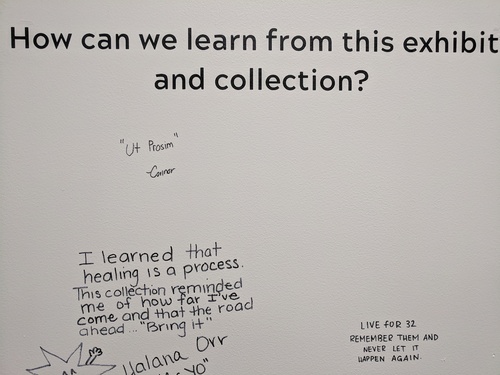 How can we learn from this exhibit
and collection?
"Ut Prosim"
-Connor
I learned that
healing is a process.
This collection reminded
me of how far I've
come and that the road
ahead... "Bring it"
Halana Orr
yo"
LIVE FOR 32
REMEMBER THEM AND
NEVER LET IT
HAPPEN AGAIN.